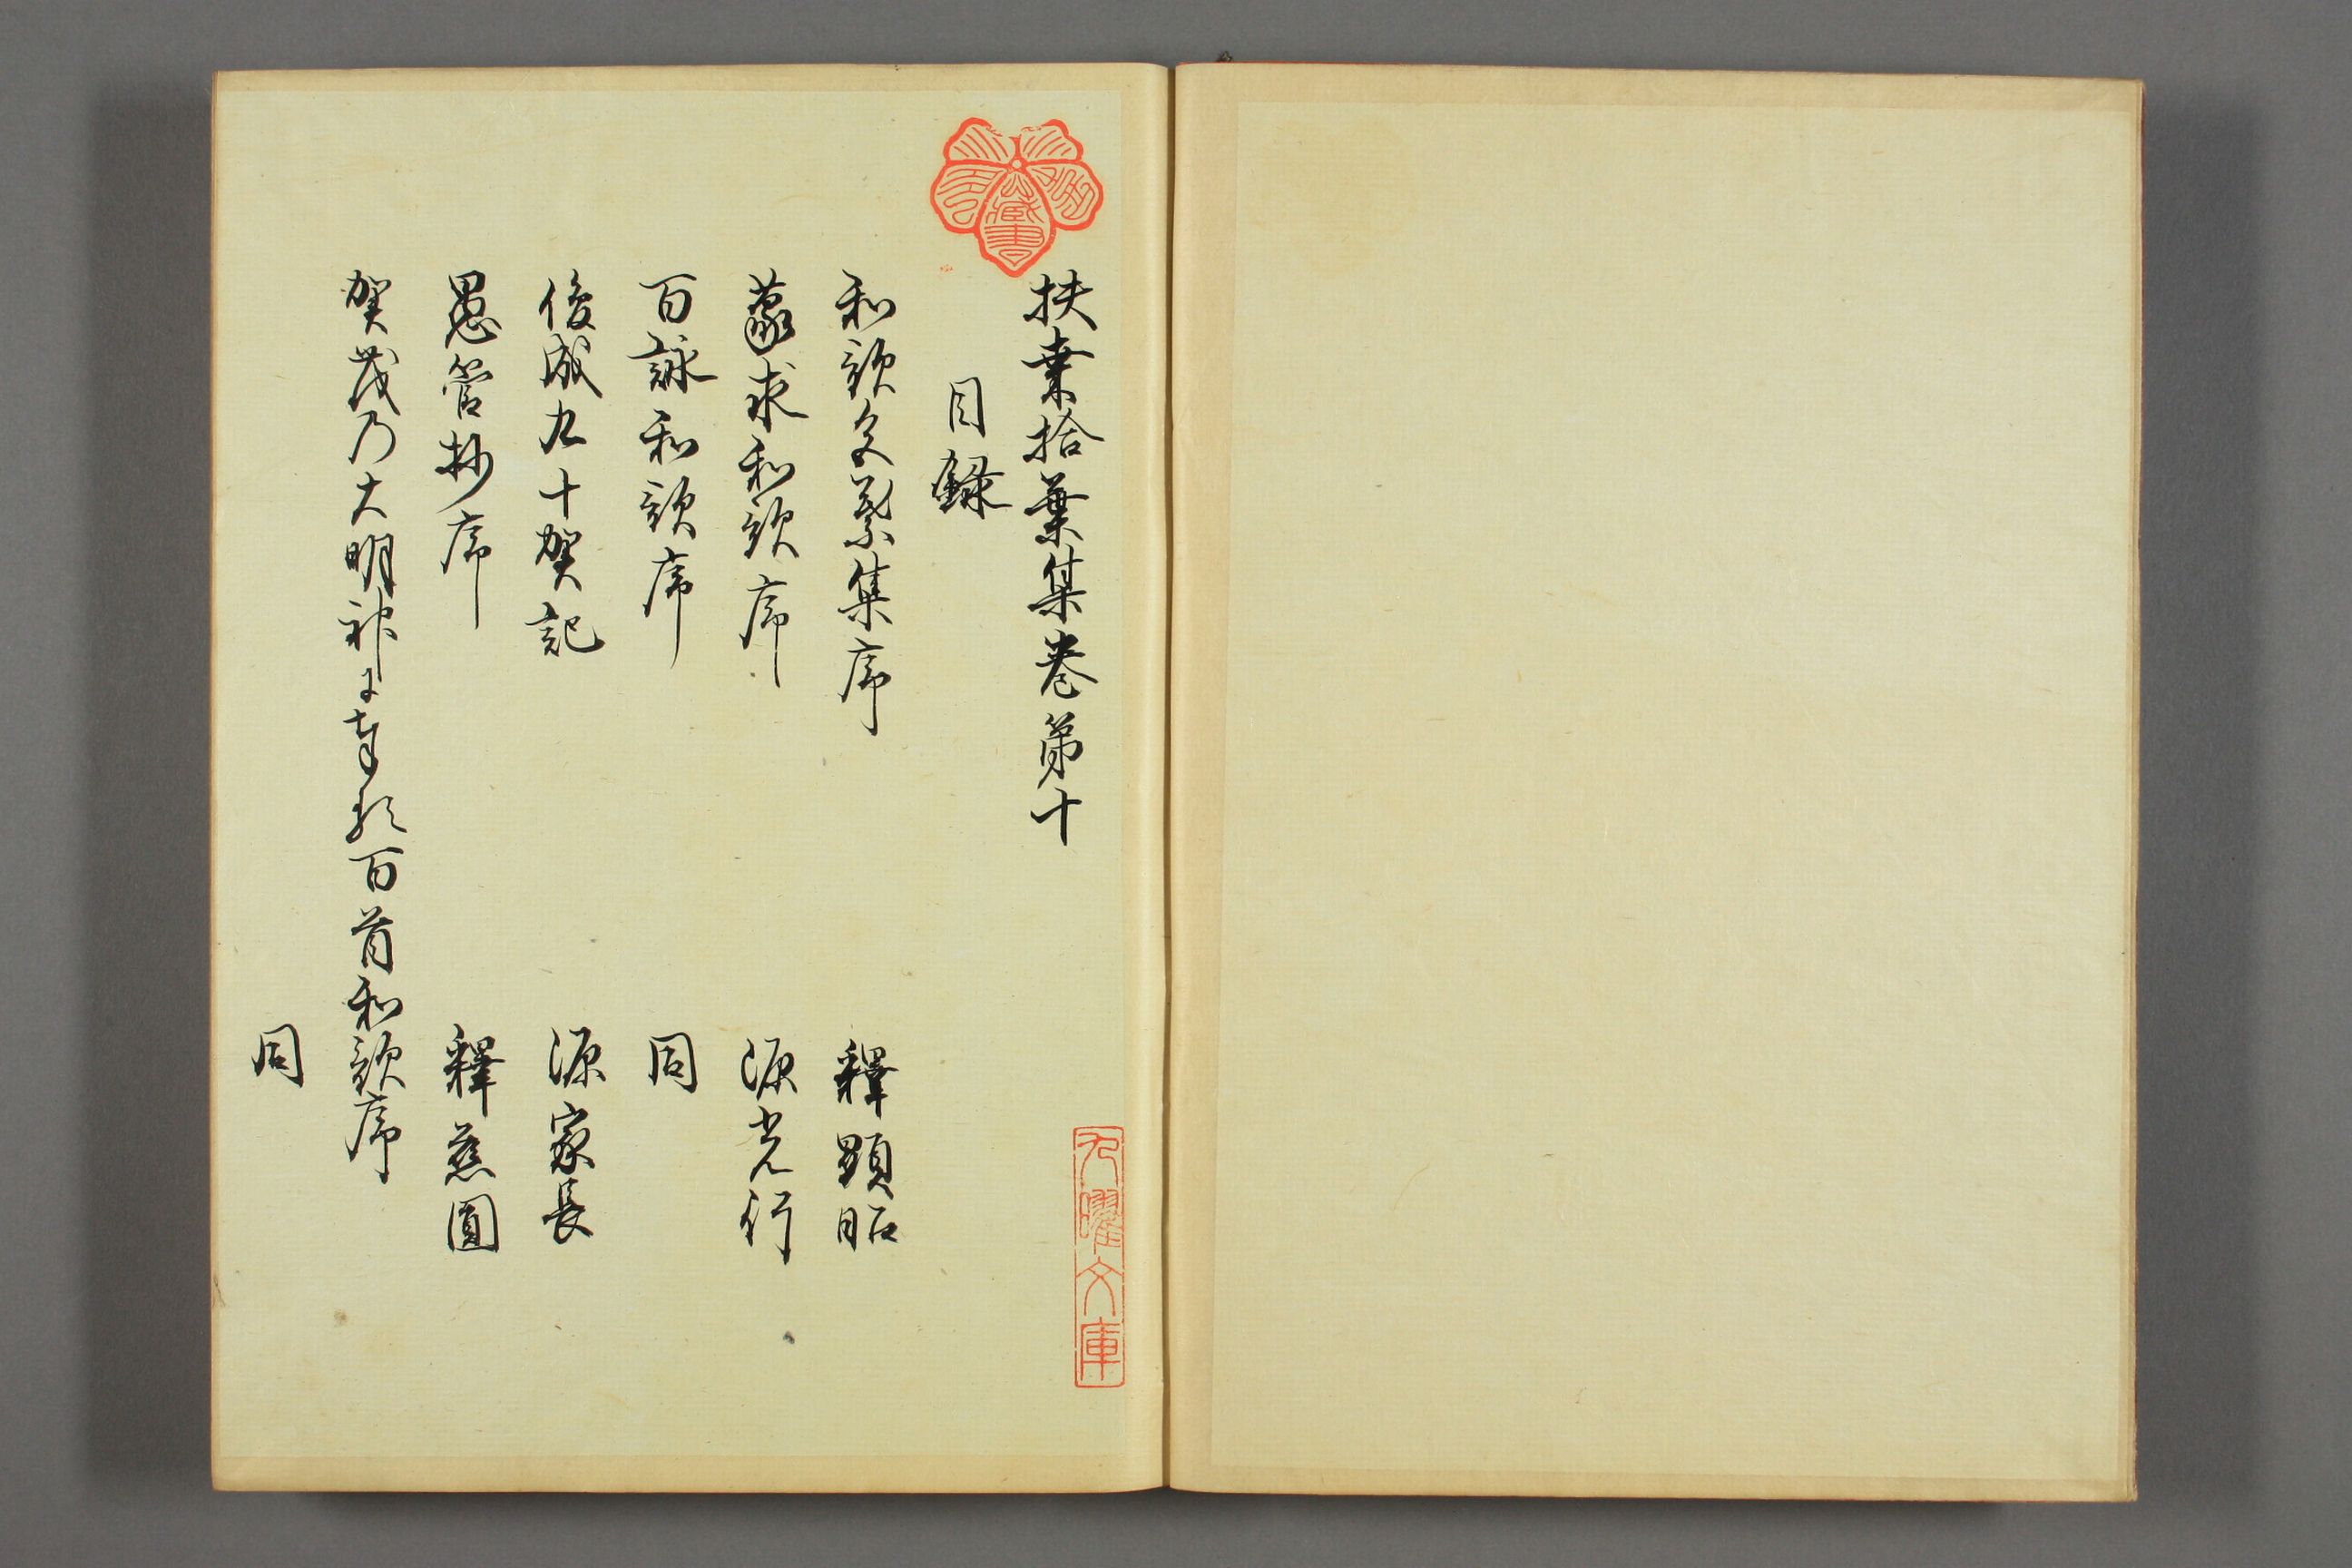 扶桒拾葉集巻第十
目録
和歌色葉集序 釋顕昭
蒙求和歌序 源光行
百詠和歌序 同
俊成九十賀記 源家長
愚管抄序 釋慈圓
賀茂乃大明神に奉る百首和歌序
同
九曜文庫